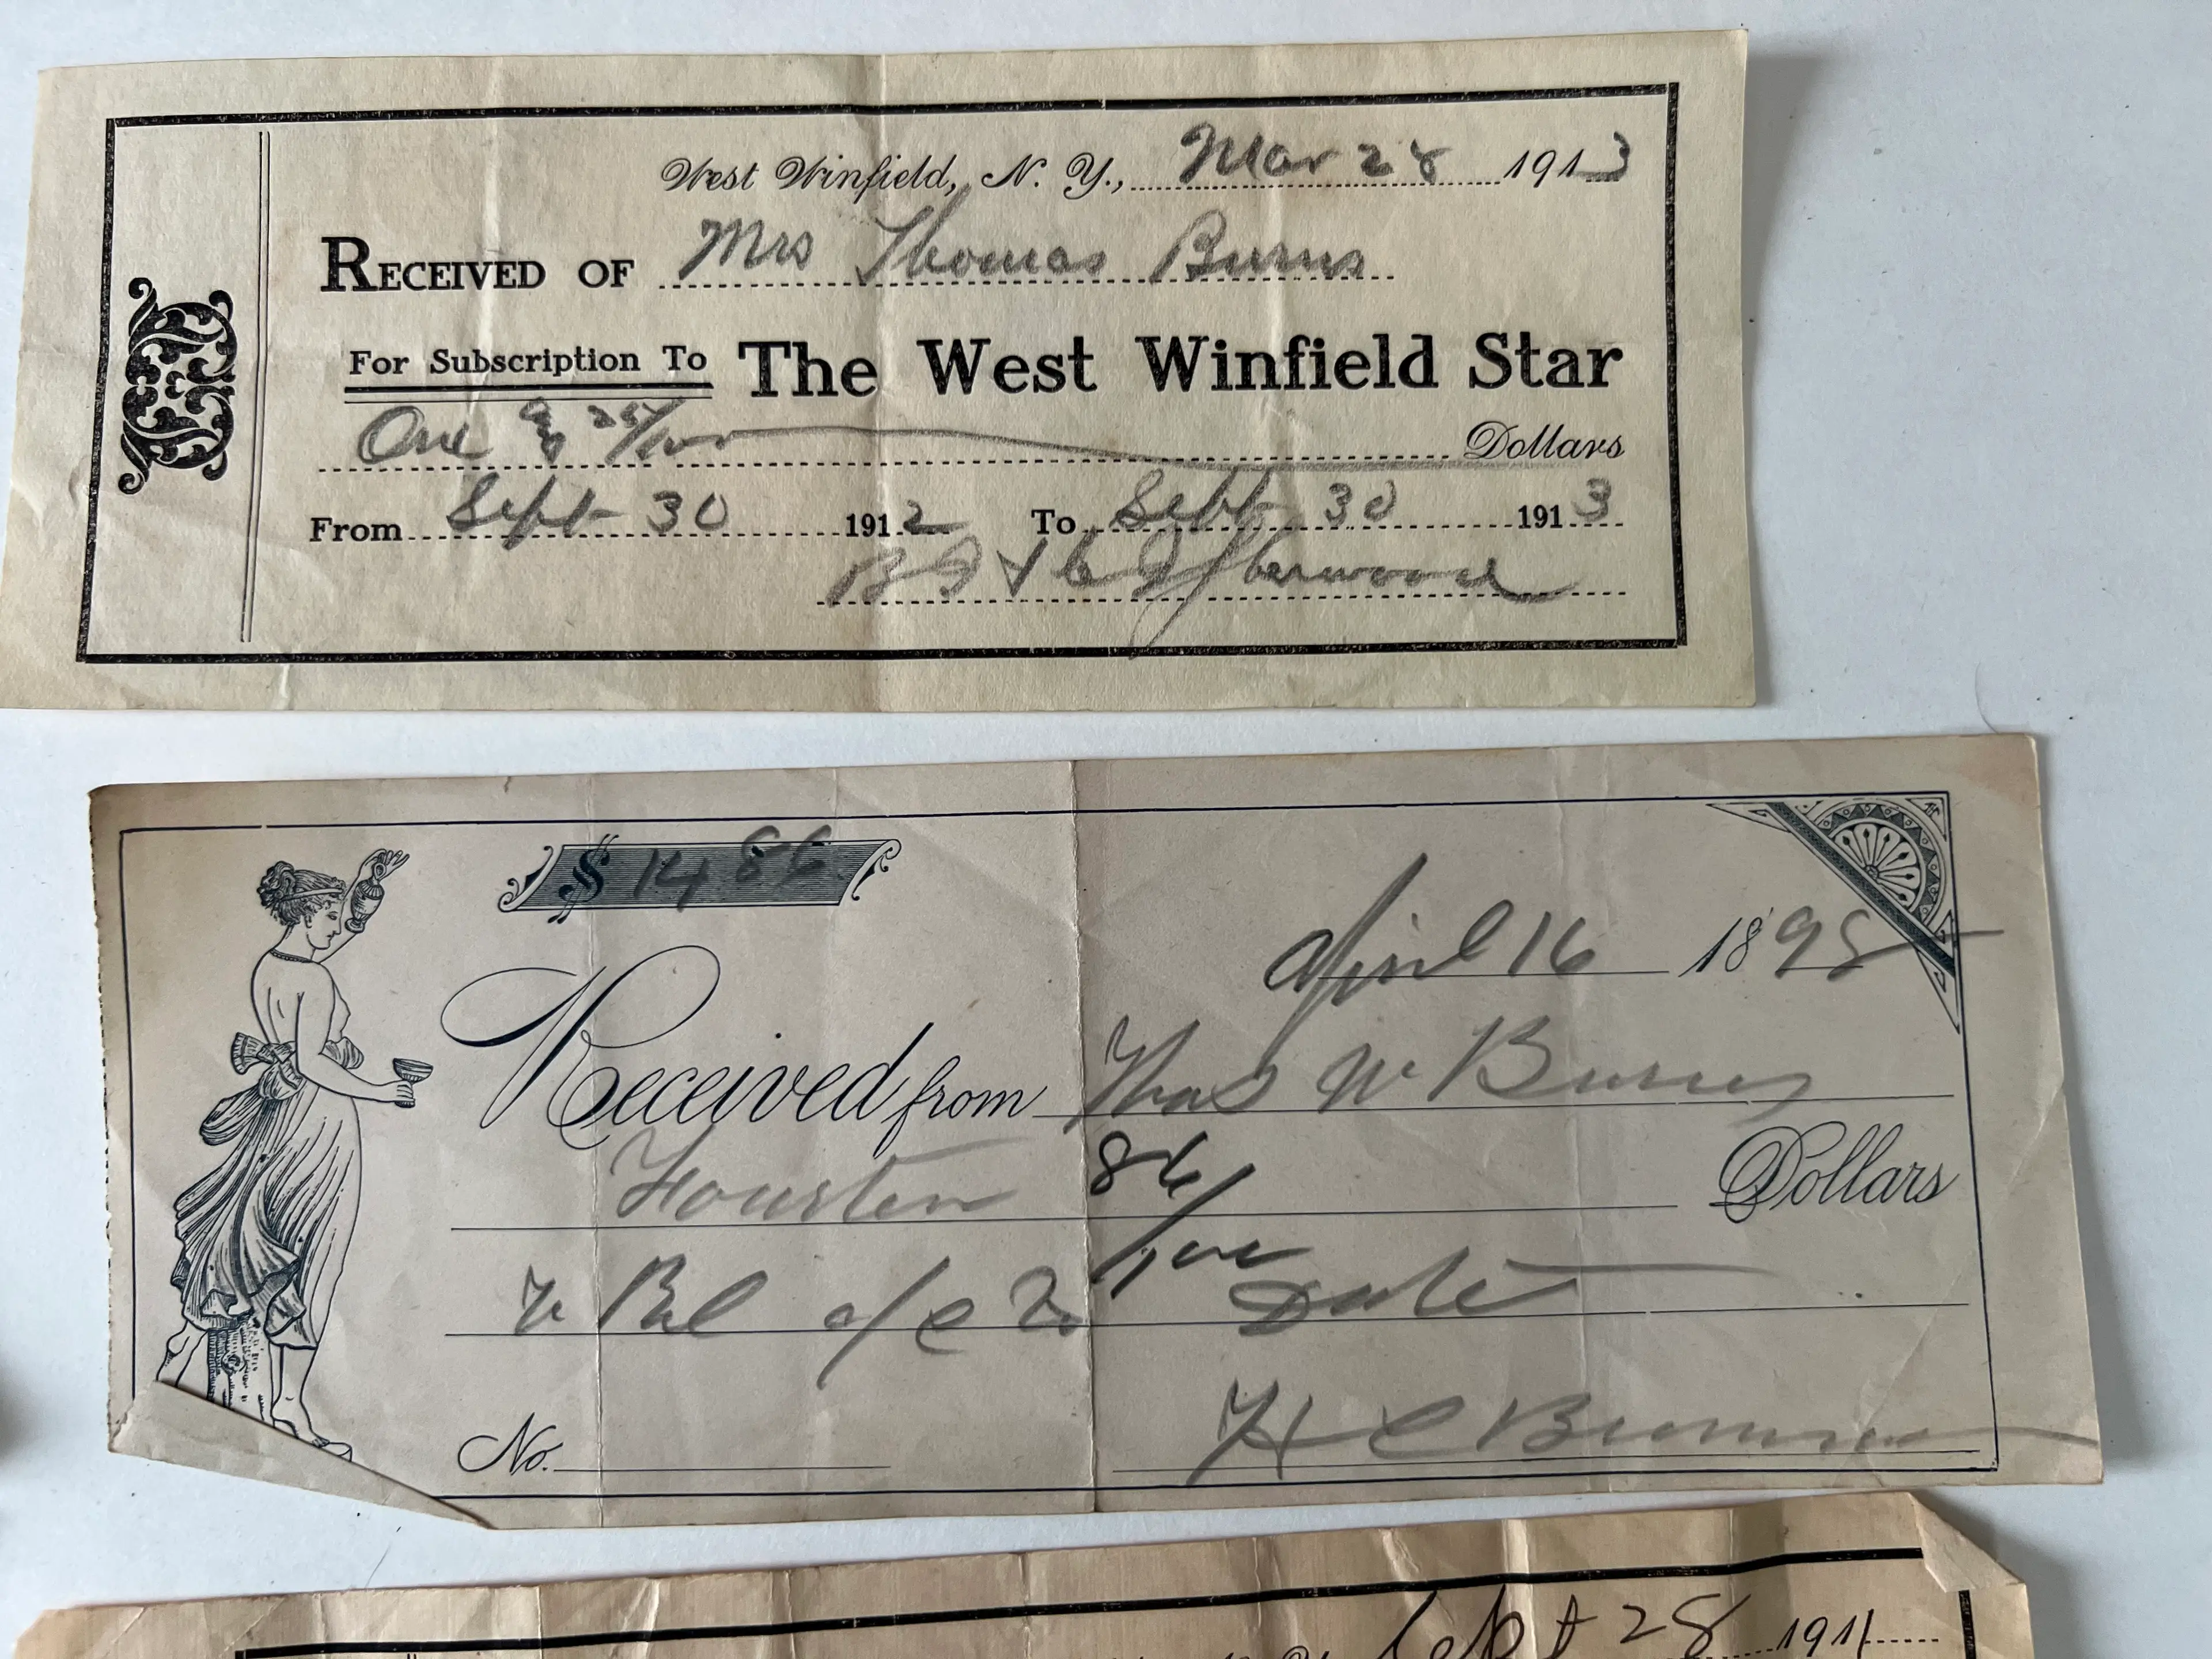 West Winfield, N. Y., Mar 28 1913
RECEIVED OF Mrs Thomas Burns
For Subscription To The West Winfield Star
One & 25/100 Dollars
From Sept 30 1912 To Sept 30 1913
Sherwood
$ 14 86
April 16 1898
Received from Thos W Burns
86/100 Dollars
Bal a/c To Date
No. H C
Sept 28 1911